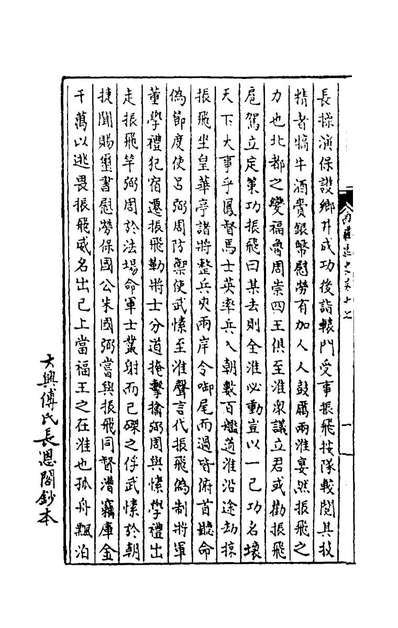 長操演保護鄉井成功後詣轅門受事振飛按隊親閱其技
精者犒牛酒賚銀幣慰勞有加人人鼓厲兩淮晏然振飛之
力也北都之變福魯周崇四王俱至淮衆議立君或勸振飛
扈駕立定策功振飛曰某去則全淮必動豈以一己功名壞
天下大事乎鳳督馬士英率兵入朝數百艦道淮沿途劫掠
振飛坐皇華亭諸將整兵夾兩岸令啣尾而過皆俯首聽命
偽節度使呂弼周防禦使武愫至淮聲言代振飛偽制將軍
董學禮犯宿遷振飛勒將士分道掩擊擒弼周與愫學禮出
走振飛竿弼周於法場命軍士叢射而已磔之俘武愫於朝
捷聞賜璽書慰勞保國公朱國弼當與振飛同督漕竊庫金
千萬以逃畏振飛威名出己上當福王之在淮也孤舟飄泊
大興傅氏長恩閣鈔本